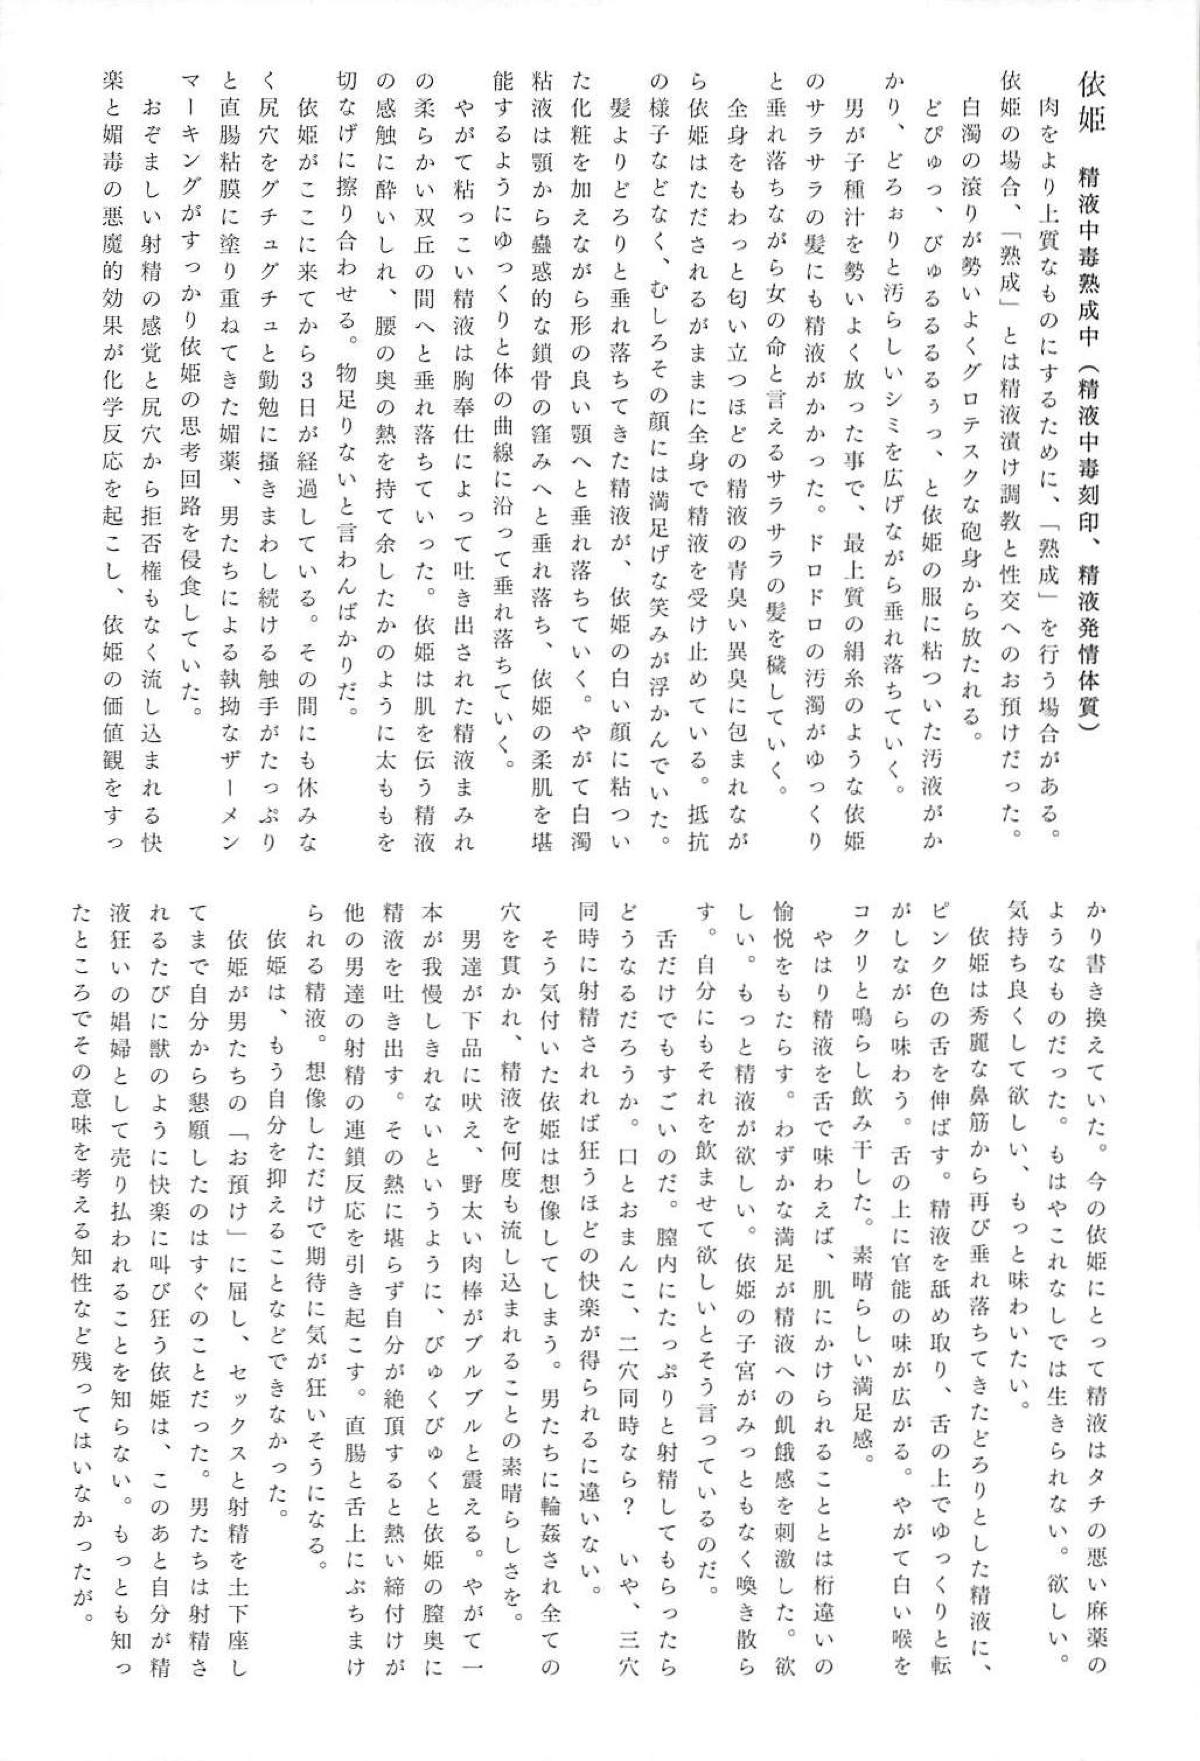 依姫　精液中毒熟成中（精液中毒刻印、精液発情体質）
肉をより上質なものにするために、「熟成」を行う場合がある。
依姫の場合、「熟成」とは精液漬け調教と性交へのお預けだった。
白濁の滾りが勢いよくグロテスクな砲身から放たれる。
どぴゅっ、びゅるるるるぅっ、と依姫の服に粘ついた汚液がか
かり、どろぉりと汚らしいシミを広げながら垂れ落ちていく。
男が子種汁を勢いよく放った事で、最上質の絹糸のような依姫
のサラサラの髪にも精液がかかった。ドロドロの汚濁がゆっくり
と垂れ落ちながら女の命と言えるサラサラの髪を穢していく。
全身をもわっと匂い立つほどの精液の青臭い異臭に包まれなが
ら依姫はただされるがままに全身で精液を受け止めている。抵抗
の様子などなく、むしろその顔には満足げな笑みが浮かんでいた。
髪よりどろりと垂れ落ちてきた精液が、依姫の白い顔に粘つい
た化粧を加えながら形の良い顎へと垂れ落ちていく。やがて白濁
粘液は顎から蠱惑的な鎖骨の窪みへと垂れ落ち、依姫の柔肌を堪
能するようにゆっくりと体の曲線に沿って垂れ落ちていく。
やがて粘っこい精液は胸奉仕によって吐き出された精液まみれ
の柔らかい双丘の間へと垂れ落ちていった。依姫は肌を伝う精液
の感触に酔いしれ、腰の奥の熱を持て余したかのように太ももを
切なげに擦り合わせる。物足りないと言わんばかりだ。
依姫がここに来てから３日が経過している。その間にも休みな
く尻穴をグチュグチュと勤勉に掻きまわし続ける触手がたっぷり
と直腸粘膜に塗り重ねてきた媚薬、男たちによる執拗なザーメン
マーキングがすっかり依姫の思考回路を侵食していた。
おぞましい射精の感覚と尻穴から拒否権もなく流し込まれる快
楽と媚毒の悪魔的効果が化学反応を起こし、依姫の価値観をすっ
かり書き換えていた。今の依姫にとって精液はタチの悪い麻薬の
ようなものだった。もはやこれなしでは生きられない。欲しい。
気持ち良くして欲しい、もっと味わいたい。
依姫は秀麗な鼻筋から再び垂れ落ちてきたどろりとした精液に、
ピンク色の舌を伸ばす。精液を舐め取り、舌の上でゆっくりと転
がしながら味わう。舌の上に官能の味が広がる。やがて白い喉を
コクリと鳴らし飲み干した。素晴らしい満足感。
やはり精液を舌で味わえば、肌にかけられることとは桁違いの
愉悦をもたらす。わずかな満足が精液への飢餓感を刺激した。欲
しい。もっと精液が欲しい。依姫の子宮がみっともなく喚き散ら
す。自分にもそれを飲ませて欲しいとそう言っているのだ。
舌だけでもすごいのだ。膣内にたっぷりと射精してもらったら
どうなるだろうか。口とおまんこ、二穴同時なら？　いや、三穴
同時に射精されれば狂うほどの快楽が得られるに違いない。
そう気付いた依姫は想像してしまう。男たちに輪姦され全ての
穴を貫かれ、精液を何度も流し込まれることの素晴らしさを。
男達が下品に吠え、野太い肉棒がブルブルと震える。やがて一
本が我慢しきれないというように、びゅくびゅくと依姫の膣奥に
精液を吐き出す。その熱に堪らず自分が絶頂すると熱い締付けが
他の男達の射精の連鎖反応を引き起こす。直腸と舌上にぶちまけ
られる精液。想像しただけで期待に気が狂いそうになる。
依姫は、もう自分を抑えることなどできなかった。
依姫が男たちの「お預け」に屈し、セックスと射精を土下座し
てまで自分から懇願したのはすぐのことだった。男たちは射精さ
れるたびに獣のように快楽に叫び狂う依姫は、このあと自分が精
液狂いの娼婦として売り払われることを知らない。もっとも知っ
たところでその意味を考える知性など残ってはいなかったが。